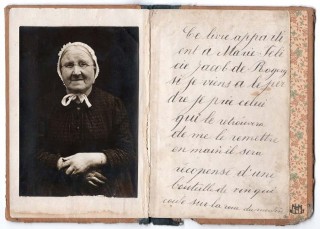 Ce livre apparti
ent à Marie Sole
au jacob de
si je viens a le per
dre je prie celui
qui le retrouvera
de me le remettre
en main il sera
récopensé d'une
bouteille de vin qui
coule sur la rue du